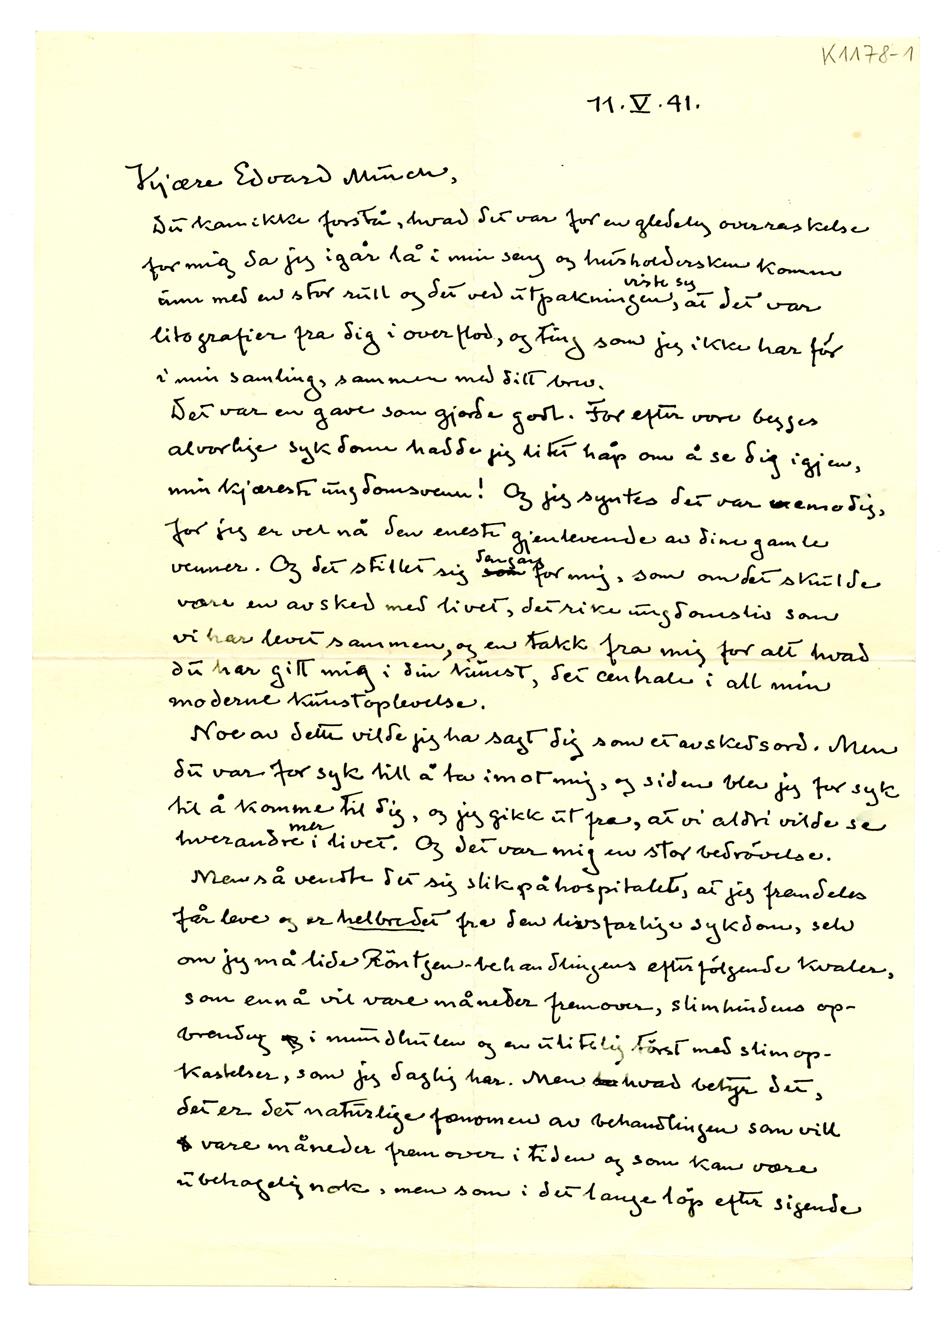 K1178-1
11.V.41.
Kjære Edvard Munch,
Du kan ikke forstå, hvad det var for en gledelig overraskelse
for mig da jeg igår lå i min seng og husholdersken komm
inn med en stor rull og det ved utpakningen viste sig, at det var
litografier fra dig i overflod, og ting som jeg ikke har før
i min samling, sammen med ditt brev.
Det var en gave som gjorde godt. For efter vore begges
alvorlige sykdomme hadde jeg litet håp om å se dig igjen,
min kjæreste ungdomsvenn! Og jeg syntes det var vemodig,
for jeg er vel nå den eneste gjenlevende av dine gamle
venner. Og det stillet sig dengang for mig, som om det skulde
være en avsked med livet, det rike ungdomsliv som
vi har levet sammen, og en takk fra mig for alt hvad
du har gitt mig i din kunst, det centrale i all min
moderne kunstoplevelse.
Noe av dette vilde jeg ha sagt dig som et avskedsord. Men
du var for syk till å ta imot mig, og siden blev jeg for syk
til å komme til dig, og jeg gikk ut fra, at vi aldri vilde se
hverandre mer i livet. Og det var mig en stor bedrøvelse.
Men så vendte det sig slik på hospitalet, at jeg fremdeles
får leve og er helbredet fra den livsfarlige sykdom, selv
om jeg må lide Röntgen-behandlingens efterfølgende kvaler,
som ennå vil vare måneder fremover, slimhindens op-
brending i mundhulen og en ulitelig tørst med slimop-
kastelser, som jeg daglig har. Men hvad betyr det,
det er det naturlige fenomen av behandlingen som vill
vare måneder fremover i tiden og som kan være
ubehagelig nok, men som i det lange løp efter sigende